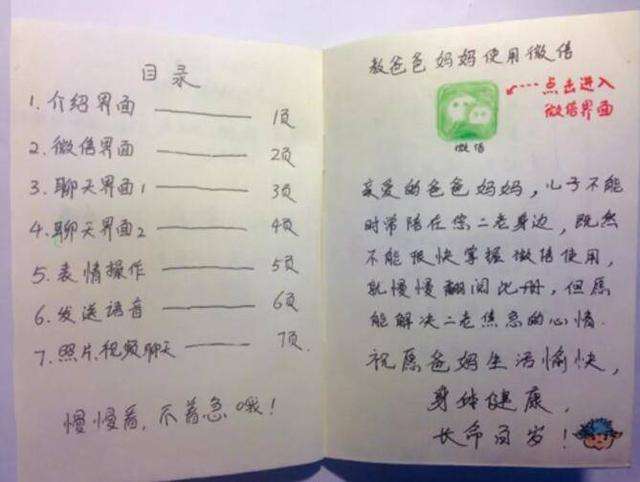 目录
1. 介绍界面 1页
2. 微信界面 2页
3. 聊天界面1 3页
4. 聊天界面2 4页
5. 表情操作 5页
6. 发送语音 6页
7. 照片、视频聊天 7页
慢慢看，不着急哦！
教爸爸妈妈使用微信
点击进入
微信界面
微信
亲爱的爸爸妈妈，儿子不能
时常陪在您二老身边，既然
不能很快掌握微信使用，
就慢慢翻阅此册，但愿
能解决二老焦急的心情.
祝愿爸妈生活愉快，
身体健康，
长命百岁！